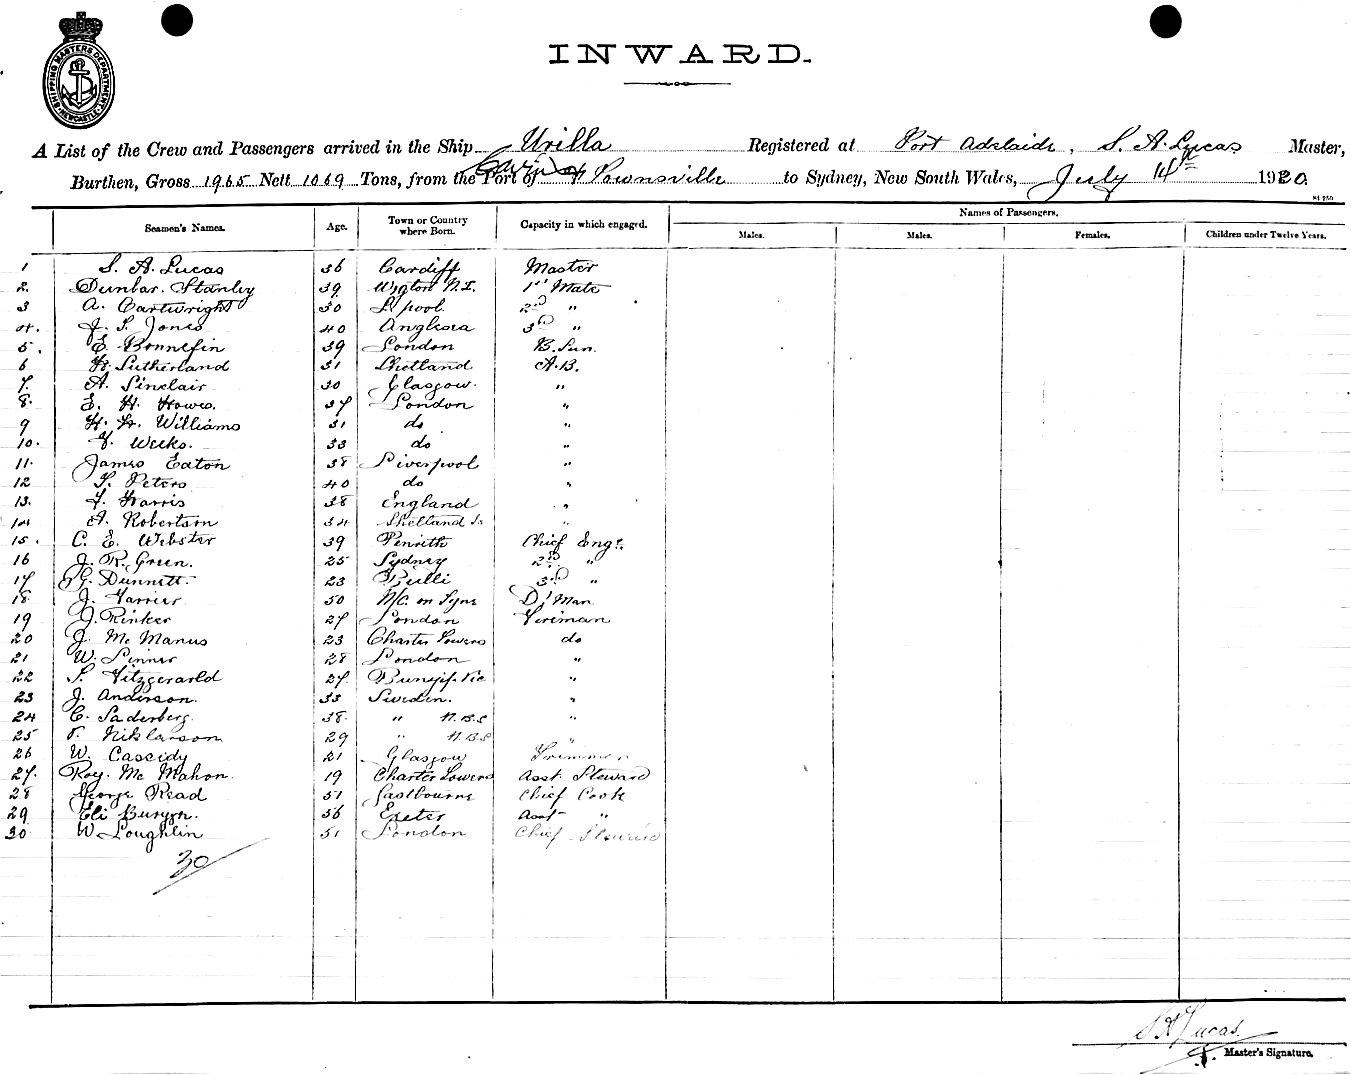 SHIPPING MASTERS DEPARTMENT NEWCASTLE
INWARD.
A List of the Crew and Passengers arrived in the Ship Urilla Registered at Port Adelaide, S. A. Lucas Master,
Burthen, Gross 1965 Nett 1069 Tons, from the Port of Townsville to Sydney, New South Wales, July 14th 1920.
Names of Passengers.
Seamen's Names. Age. Town or Country where Born. Capacity in which engaged. Males. Males. Females. Children under Twelve Years.
1 S. A. Lucas 36 Cardiff Master
2. Dunbar Stanley 39 Wigton N.I. 1st Mate
3 A. Cartwright 30 L'pool 2nd "
4. J. S. Jones 40 Anglesea 3rd "
5. E. Bonnefin 39 London B. Sun.
6 Sutherland 31 Shetland A.B.
7. A. Sinclair 30 Glasgow. "
8. E. H. Howes. 37 London "
9 H. W. Williams 31 do "
10. Weeks. 33 do "
11. James Eaton 38 Liverpool "
12 S. Peters 40 do "
13. Harris 38 England "
14 A. Robertson 34 Shetland Is "
15. C. E. Webster 39 Penrith Chief Engr.
16 J. R. Green. 25 Sydney 2nd "
17 G. Dunnett. 23 Bulli 3rd "
18. J. 50 N/C. on Tyne D/Man
19 J. Rinker 27 London Fireman
20 J. Mc Manus 23 Charter Towers do
21 W. 28 London "
22 Fitzgerarld 27. Bunyip. Vic "
23 J. Anderson. 33 Sweden. "
24 C. Saderberg. 38. " N.B.S "
25 Niklarson 29 " N.B.S "
26 W. Cassidy 21 Glasgow Trimmer
27. Roy. Mc Mahon. 19 Charter Towers Asst. Steward
28 George Read 51 Eastbourne Chief Cook
29 Eli 36 Exeter Asst "
30 W Loughlin 51 London Chief Steward
30
S A Lucas.
Master's Signature.